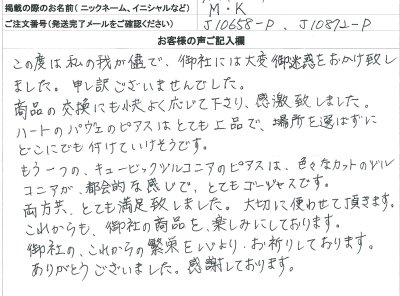 掲載の際のお名前(ニックネーム、イニシャルなど) M・K
ご注文番号(発送完了メールをご確認ください) J10658-P、J10872-P
お客様の声ご記入欄
この度は私の我が儘で、御社には大変御迷惑をおかけ致し
ました。申し訳ございませんでした。
商品の交換にも快よく応じて下さり、感激致しました。
ハートのパヴェのピアスはとても上品で、場所を選ばずに
どこにでも付けていけそうです。
もう一つの、キュービックジルコニアのピアスは、色々なカットのジル
コニアが、都会的な感じで、とてもゴージャスです。
両方共、とても満足致しました。大切に使わせて頂きます。
これからも、御社の商品を、楽しみにしております。
御社の、これからの繁栄を心より、お祈りしております。
ありがとうございました。感謝しております。